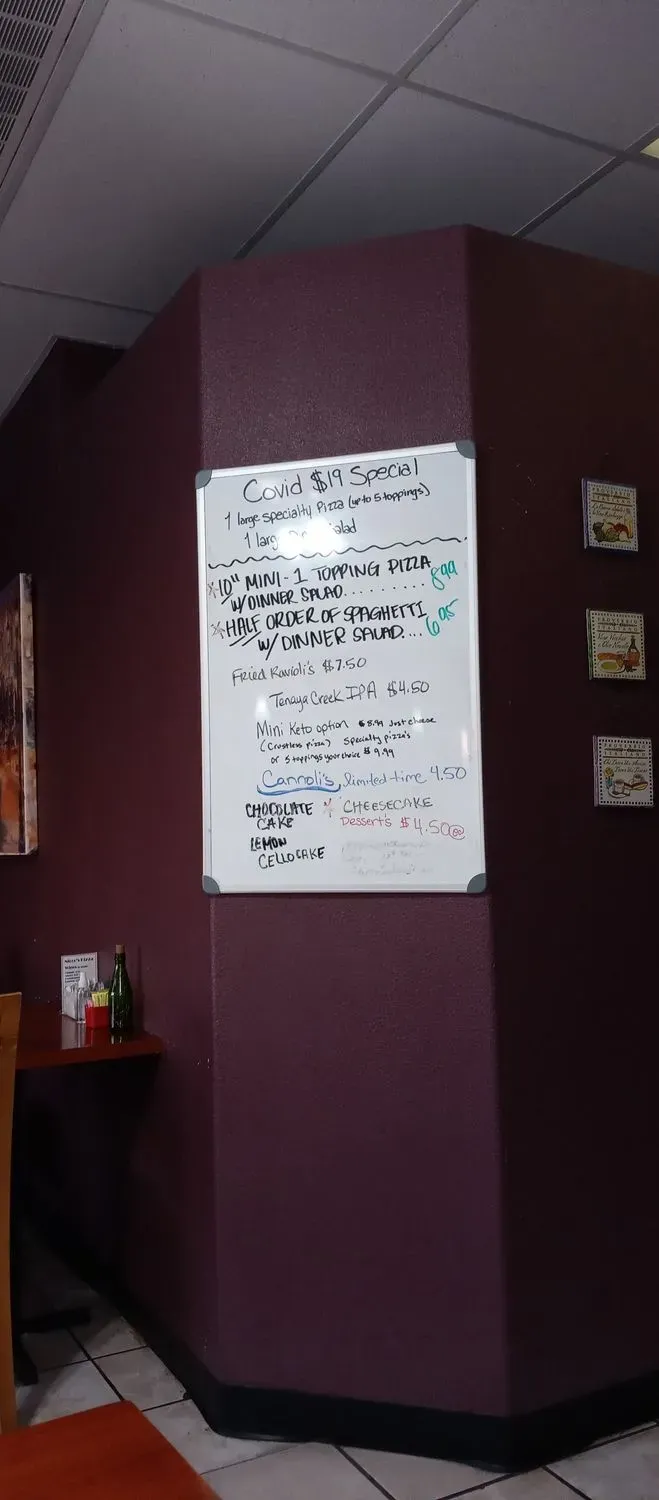 Covid $19 Special
1 large specialty Pizza (up to 5 toppings)
1 large Salad
10" MINI - 1 TOPPING PIZZA
W/DINNER SALAD......... 8.99
HALF ORDER OF SPAGHETTI
W/ DINNER SALAD.... 6.95
Fried Ravioli's $7.50
Tenaya Creek IPA $4.50
Mini Keto option $8.99 Just cheese
(Crustless pizza) Specialty pizza's
or 5 toppings your choice $9.99
Cannoli's, limited time 4.50
CHOCOLATE CAKE
CHEESECAKE
Dessert's $4.50
LEMON
CELLO CAKE
PROVERBIO
ITALIANO
PROVERBIO
ITALIANO
PROVERBIO
ITALIANO